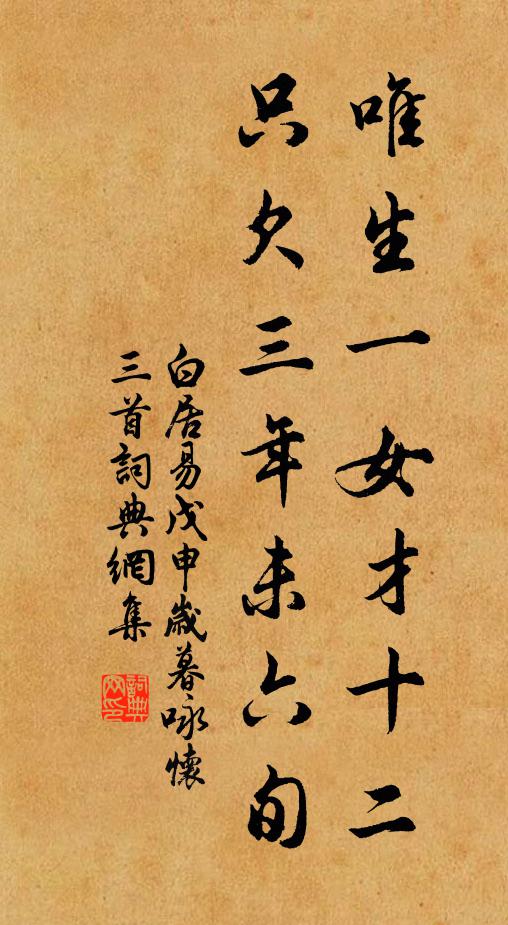 唯生一女才十二
只欠三年未六旬
白居易戊申歲暮咏懷
三首詞典網集
詞典網印